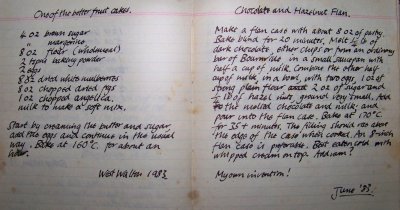 One of the better fruit cakes.
4 oz brown sugar
" margarine
8 oz flour (wholemeal)
2 tspns baking powder
2 eggs
8 oz dried white mulberries
8 oz chopped dried figs
1 oz chopped angelica.
milk to make a soft mix.
Start by creaming the butter and sugar
add the eggs and continue in the usual
way. Bake at 160°C. for about an
hour.
West Walton 1983.
Chocolate and Hazelnut Flan.
Make a flan case with about 8 oz of pastry.
Bake blind for 20 minutes. Melt ½ lb of
dark chocolate, either chips or from an ordinary
bar of Bournville in a small saucepan with
half a cup of milk. Combine the other half
cup of milk in a bowl, with two eggs, 1 oz of
strong plain flour 2 oz of sugar and
½ lb of hazel nuts, ground very small. Add
to the melted chocolate and milk, and
pour into the flan case. Bake at 170°C
for 35+ minutes. The filling should rise above
the edge of the case when cooked. An 8-inch
flan case is preferable. Best eaten cold with
whipped cream on top.
My own invention!
June '83.